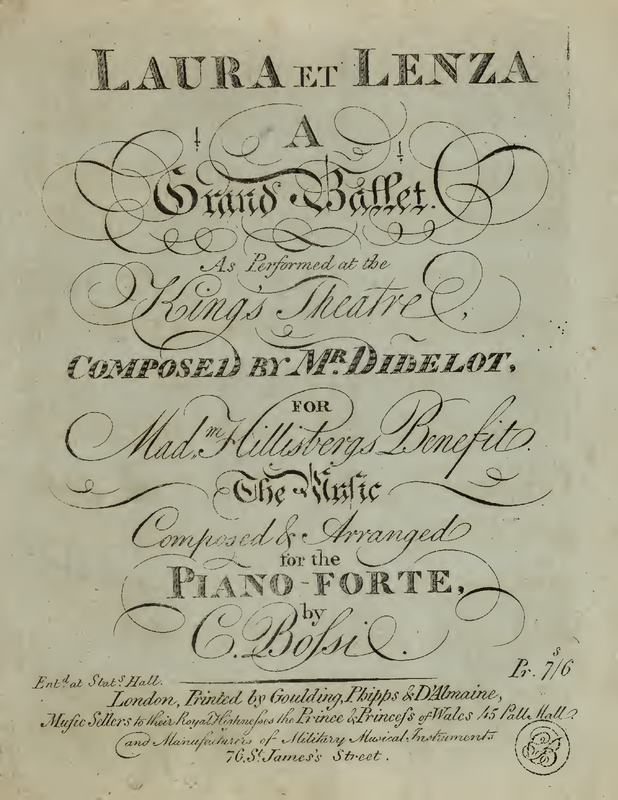 LAURA ET LENZA
A
Grand Ballet.
As Performed at the
King's Theatre,
COMPOSED BY MR. DIDELOT,
FOR
Madm. Hillisbergs Benefit.
The Music
Composed & Arranged
for the
PIANO-FORTE,
by
C. Boſsi.
Pr. 7s/6
Entd. at Stats. Hall.
London, Printed by Goulding, Phipps & D'Almaine,
Muſic Sellers to their Royal Highneſses the Prince & Princeſs of Wales 45 Pall Mall
and Manufacturers of Military Musical Instruments
76, St. James's Street.